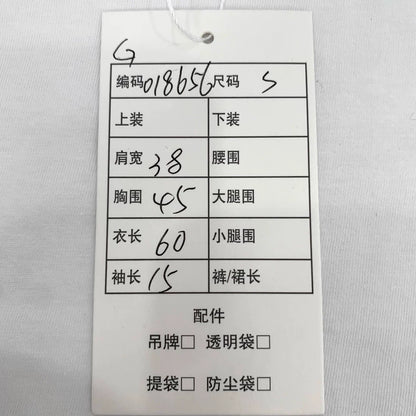 G
编码 018656 尺码 S
上装 下装
肩宽 38 腰围
胸围 45 大腿围
衣长 60 小腿围
袖长 15 裤/裙长
配件
吊牌□ 透明袋□
提袋□ 防尘袋□